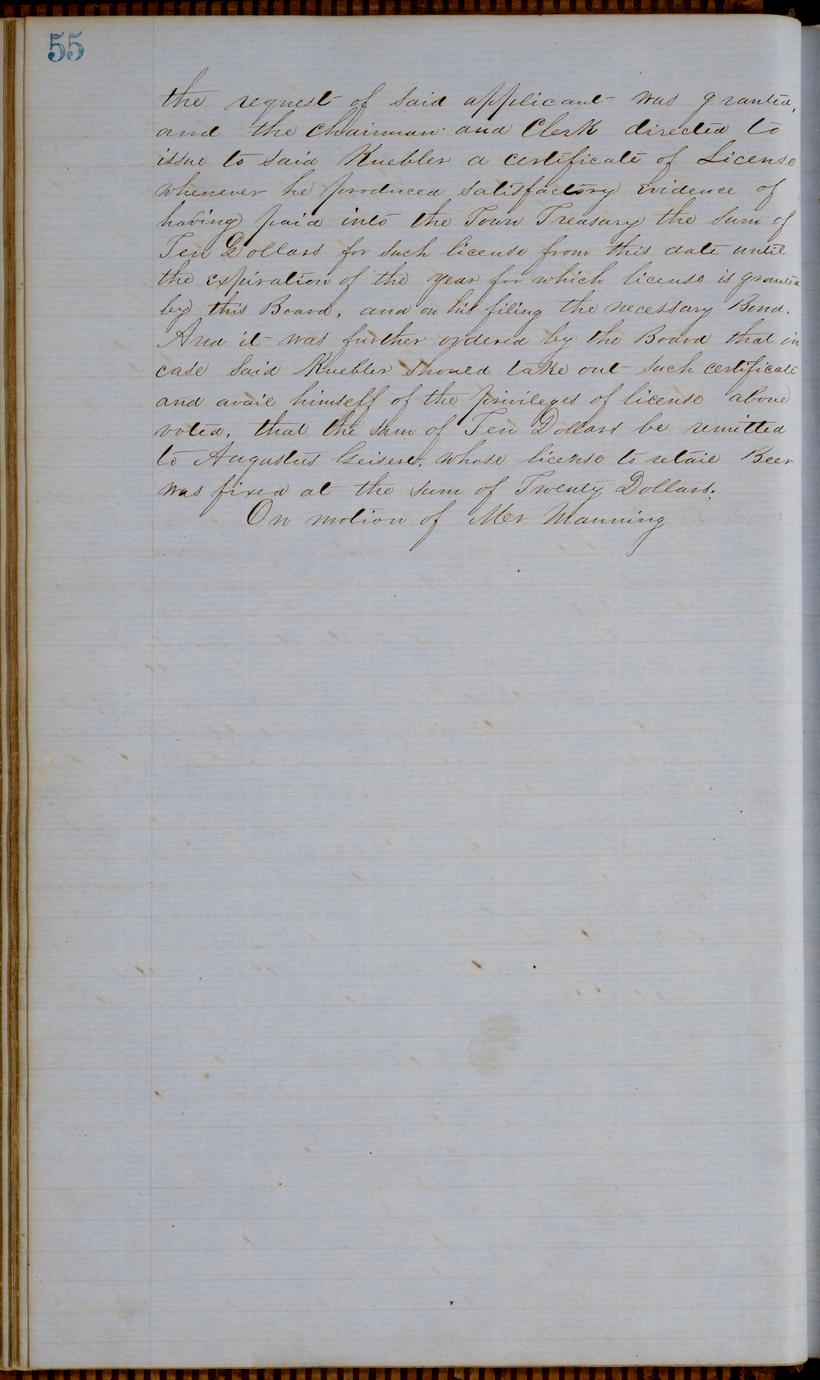 55
the request of said applicant was granted,
and the Chairman and Clerk directed to
issue to said Kuebler a certificate of License
whenever he produced satisfactory evidence of
having paid into the Town Treasury the sum of
Ten Dollars for such license from this date until
the expiration of the year for which license is granted
by this Board, and on his filing the necessary Bond.
And it was further ordered by the Board that in
case said Kuebler should take out such certificate
and avail himself of the privileges of license above
voted, that the sum of Ten Dollars be remitted
to Augustus Geisert, whose license to retail Beer
was fixed at the sum of Twenty Dollars.
On motion of Mr Manning